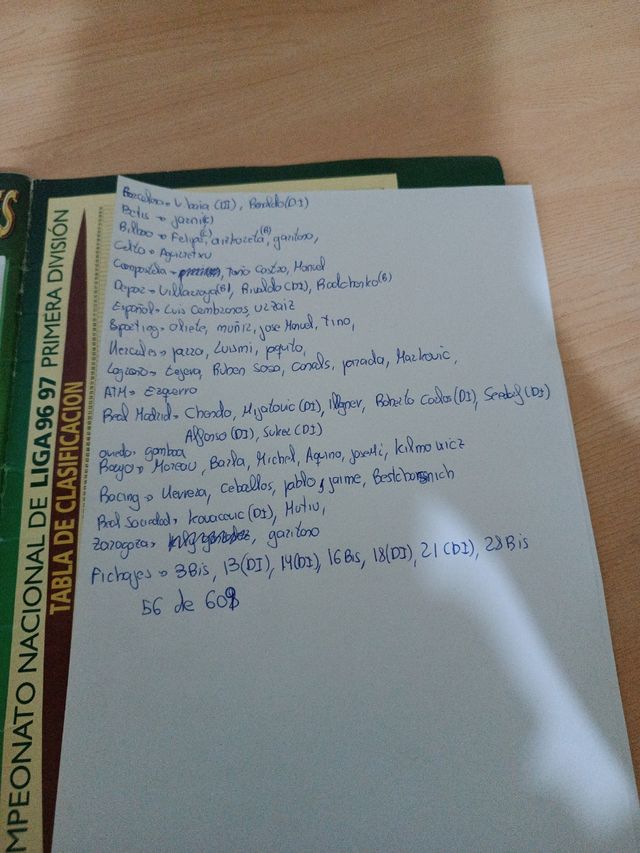 S
MPEONATO NACIONAL DE LIGA 96 97 PRIMERA DIVISIÓN
TABLA DE CLASIFICACION
Barcelona → (DI), Ronaldo (DI)
Betis → Jarni (C)
Bilbao → Felipe (C), (B), garitano,
Celta → Aguirretxu
Compostela → Tono Castro, Manuel
Depor → Villarroya (B), Rivaldo (DI), Radchenko (B)
Español → Luis Cembranos, Uzaiz
Sporting → Oliete, muñiz, Jose Manuel, Tino,
Hercules → parra, Luismi, paquito,
Logroño → Lopera, Ruben Sosa, Canals, Markovic,
ATM → Ezquerro
Real Madrid → Chendo, Mijatovic (DI), Illgner, Roberto Carlos (DI), Seedorf (DI)
Alfonso (DI), Suker (DI)
oviedo → gamboa
Rayo → Moreau, Barla, Michel, Aquino, josemi, Kilmowicz
Racing → Herrera, Ceballos, pablo, jaime, Bestchasnich
Real Sociedad → Kovacevic (DI), Mutiu,
Zaragoza → garitano
Fichajes → 3Bis, 13 (DI), 14 (DI), 16 Bis, 18 (DI), 21 (DI), 28 Bis
56 de 60$